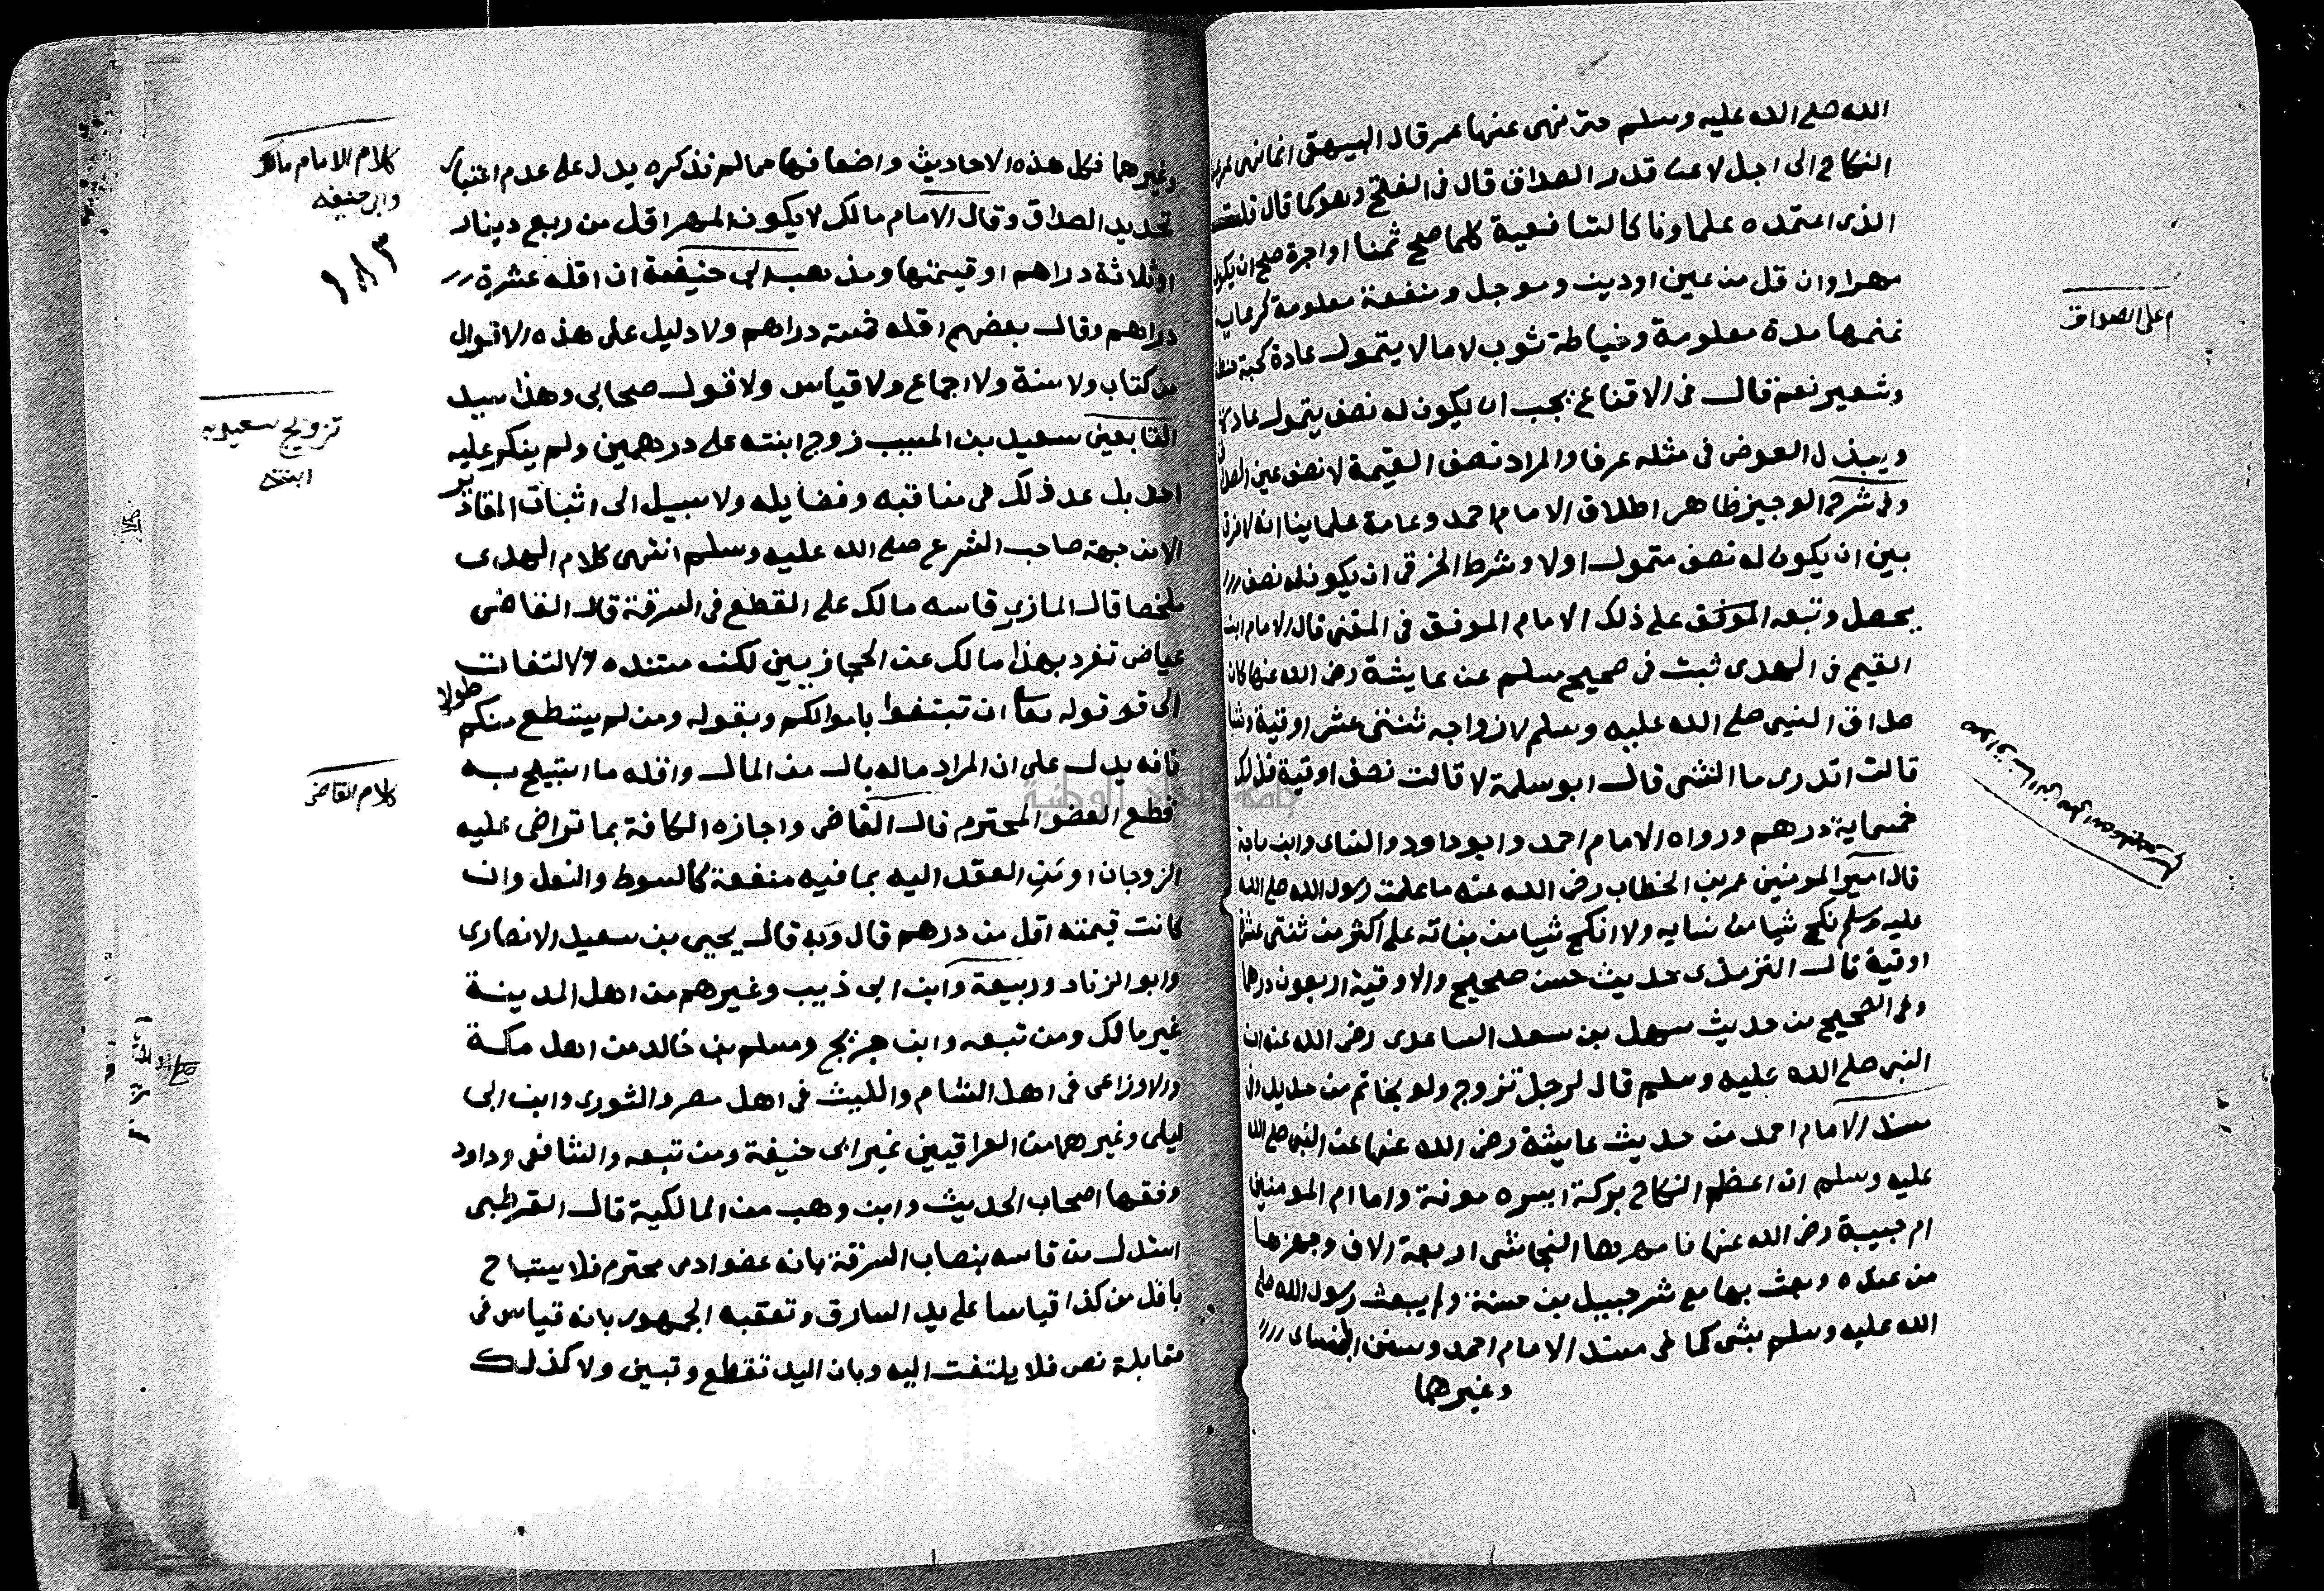 الله صلى الله عليه وسلم حتى نهى عنها عمر قال البيهقى انما نهى عمر عن
النكاح الى اجل لا عن قدر الصداق قال فى الفتح وهو كما قال قلت
الذى اعتمده علماونا كالشافعية كلما صح ثمنا او اجرة صح ان يكون
مهرا وان قل من عين او دين وموجل ومنفعة معلومة كرعاية
غنمها مدة معلومة وخياطة ثوب لا ما لا يتمول عادة كحبة حنطة
وشعير نعم قال فى الاقناع يجب ان يكون له نصف يتمول عادة
ويبذل العوض فى مثله عرفا والمراد نصف القيمة لا نصف عين الصداق
وفى شرح الوجيز ظاهر اطلاق الامام احمد وعامة علماينا انه لا فرق
بين ان يكون له نصف متمول اولا وشرط الخرقى ان يكون له نصف
يحصل وتبعه الموفق على ذلك الامام الموفق فى المغنى قال الامام ابن
القيم فى الهدى ثبت فى صحيح مسلم عن عايشة رضى الله عنها كان
صداق النبى صلى الله عليه وسلم لازواجه ثنتى عشر اوقية ونشا
قالت اتدرى ما النش قال ابو سلمة لا قالت نصف اوقية فذلك
خمساية درهم ورواه الامام احمد وابو داود والنساى وابن ماجة
قال امير المومنين عمر بن الخطاب رضى الله عنه ما علمت رسول الله صلى الله
عليه وسلم نكح شيا من نسايه ولا انكح شيا من بناته على اكثر من ثنتى عشرة
اوقية قال الترمذى حديث حسن صحيح والاوقية اربعون درهما
وفى الصحيح من حديث سهل بن سعد الساعدى رضى الله عنه ان
النبى صلى الله عليه وسلم قال لرجل تزوج ولو بخاتم من حديد وفى
مسند الامام احمد من حديث عايشة رضى الله عنها عن النبى صلى الله
عليه وسلم ان اعظم النكاح بركة ايسره مونة واما ام المومنين
ام حبيبة رضى الله عنها فامهرها النجاشى اربعة الاف وجهزها
من عنده وبعث بها مع شرحبيل بن حسنة ولم يبعث رسول الله صلى
الله عليه وسلم بشى كما فى مسند الامام احمد وسنن النساى
وغيرهما
اعلى الصداق
وغيرهما فكل هذه الاحاديث واضعافها مما لم نذكره يدل على عدم اعتبار
تحديد الصداق وقال الامام مالك لا يكون المهر اقل من ربع دينار
او ثلاثة دراهم او قيمتها ومذهب ابى حنيفة ان اقله عشرة
دراهم وقال بعضهم اقله خمسة دراهم ولا دليل على هذه الاقوال
من كتاب ولا سنة ولا اجماع ولا قياس ولا قول صحابى وهذا سيد
التابعين سعيد بن المسيب زوج ابنته على درهمين ولم ينكر عليه
احد بل عد ذلك فى مناقبه وفضايله ولا سبيل الى اثبات المقادير
الا من جهة صاحب الشرع صلى الله عليه وسلم انتهى كلام الهدى
ملخصا قال المازرى قاسه مالك على القطع فى السرقة قال القاضى
عياض تفرد بهذا مالك عن الحجازيين لكن مستنده الالتفات
الى قو قوله تعا ان تبتغوا باموالكم وبقوله ومن لم يستطع منكم طولا
فانه يدل على ان المراد ماله بال من المال واقله ما استبيح به
قطع العضو المحترم قال القاضى واجازه الكافة بما تراضى عليه
الزوجان او من العقد اليه بما فيه منفعة كالسوط والنعل وان
كانت قيمته اقل من درهم قال وبه قال يحيى بن سعيد الانصارى
وابو الزناد وربيعة وابن ابى ذيب وغيرهم من اهل المدينة
غير مالك ومن تبعه وابن جريج ومسلم بن خالد من اهل مكة
والاوزاعى فى اهل الشام والليث فى اهل مصر والثورى وابن ابى
ليلى وغيرهما من العراقيين غير ابى حنيفة ومن تبعه والشافعى وداود
وفقها اصحاب الحديث وابن وهب من المالكية قال القرطبى
استدل من قاسه بنصاب السرقة بانه عضو ادمى محترم فلا يستباح
باقل من كذا قياسا على يد السارق وتعقبه الجمهور بانه قياس فى
مقابلة نص فلا يلتفت اليه وبان اليد تقطع وتبين ولا كذلك
كلام الامام مالك
وابى حنيفه
١٨٣
تزويج سعيد
ابنته
كلام القاضى
جامعة النجاح الوطنية